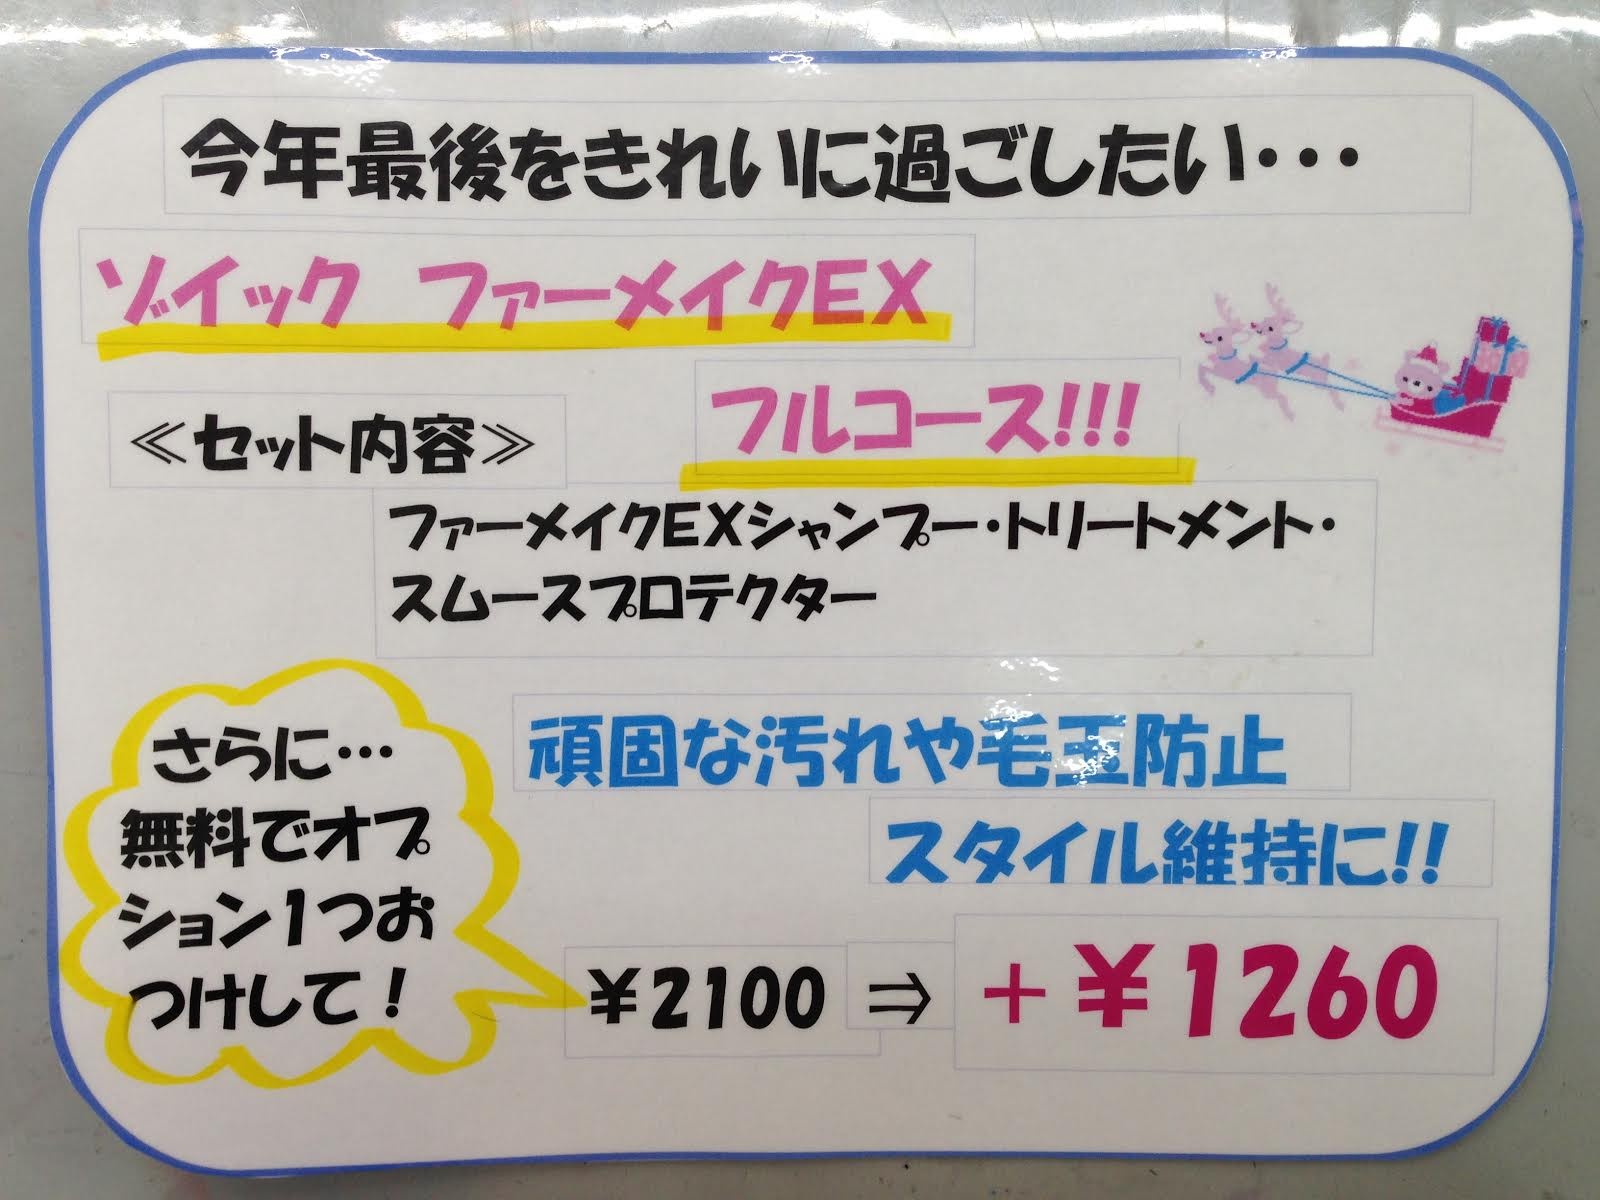 今年最後をきれいに過ごしたい・・・
ゾイック ファーメイクEX
フルコース!!!
≪セット内容≫
ファーメイクEXシャンプー・トリートメント・
スムースプロテクター
頑固な汚れや毛玉防止
スタイル維持に!!
さらに…
無料でオプ
ション1つお
つけして！
¥2100 ⇒ +¥1260